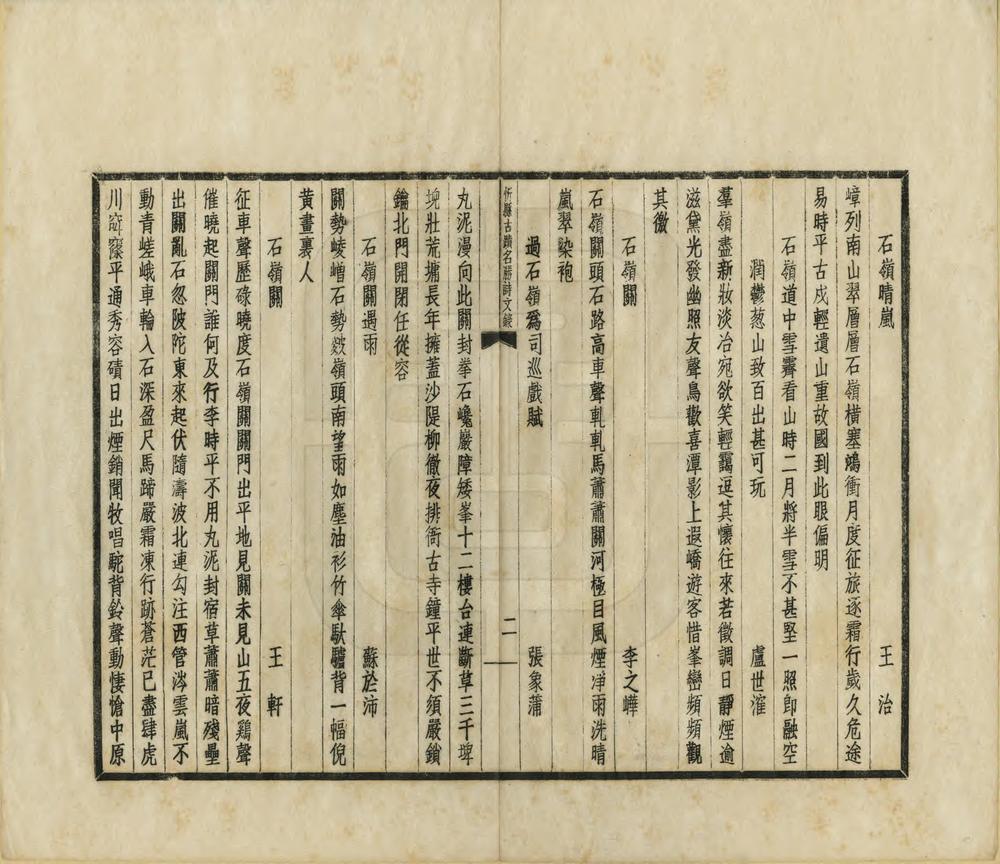 石嶺晴嵐　王治
嶂列南山翠層層石嶺橫塞鴻衝月度征旅逐霜行歲久危途
易時平古戍輕遺山重故國到此眼偏明
石嶺道中雪霽看山時二月將半雪不甚堅一照卽融空
潤鬱葱山致百出甚可玩　盧世㴶
羣嶺盡新妝淡冶宛欲笑輕靄逗其懷往來若徵調日靜煙逾
滋黛光發幽照友聲鳥歡喜潭影上遐嶠遊客惜峯巒頻頻觀
其徼
石嶺關　李之嶧
石嶺關頭石路高車聲軋軋馬蕭蕭關河極目風煙凈雨洗晴
嵐翠染袍
過石嶺爲司巡戲賦　張象蒲
忻縣古蹟名勝詩文錄　二
丸泥漫向此關封拳石巉巖障矮峯十二樓台連斷草三千埤
堄壯荒墉長年擁蓋沙隄柳徹夜排衙古寺鐘平世不須嚴鎖
鑰北門開閉任從容
石嶺關遇雨　蘇於沛
關勢崚嶒石勢皴嶺頭南望雨如塵油衫竹傘馱驢背一幅倪
黃畫裏人
石嶺關　王軒
征車聲歷碌曉度石嶺關關門出平地見關未見山五夜鷄聲
催曉起關門誰何及行李時平不用丸泥封宿草蕭蕭暗殘壘
出關亂石忽陂陀東來起伏隨濤波北連勾注西管涔雲嵐不
動青嵯峨車輪入石深盈尺馬蹄嚴霜凍行跡蒼茫已盡肆虎
川窙寥平通秀容磧日出煙銷聞牧唱駝背鈴聲動悽愴中原